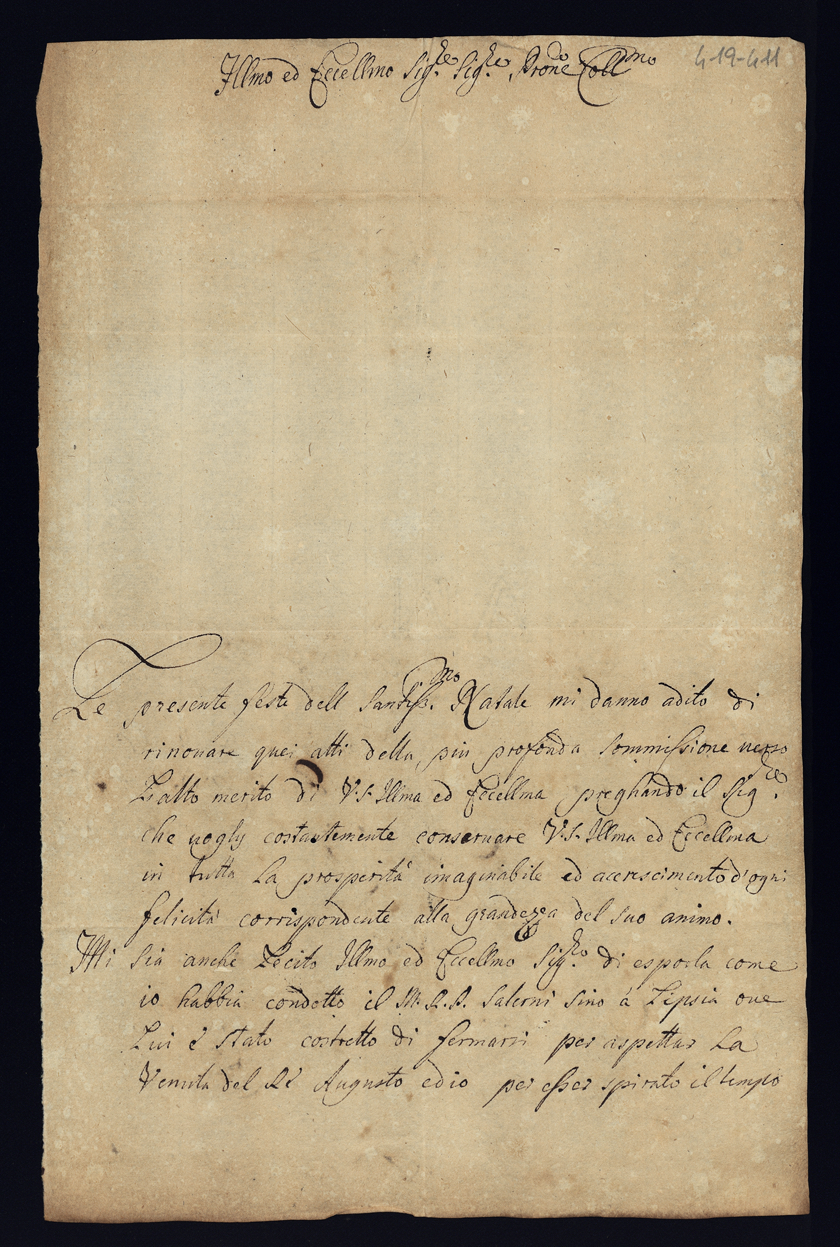 Illmo ed Eccellmo Sigre Sigre Prone Collmo
4-19-411
Le presente feste dell Santissmo. Natale mi danno adito di
rinouare quei atti della più profonda sommissione uerso
L'alto merito di V.S. Illma ed Eccellma preghando il Sigre.
che uogly costantemente conseruare V.S. Illma ed Eccellma
in tutta la prosperità imaginabile ed accrescimento d'ogni
felicità corrispondente alla grandezza del suo animo.
Mi sia anche Lecito Illmo ed Eccellmo Sigre di esporla come
io habbia condotto il M. R. P. Salerni sino à Lipsia oue
Lui è stato costretto di fermarsi per aspettar la
Venuta del Rè Augusto ed io per esser spirato il tempo